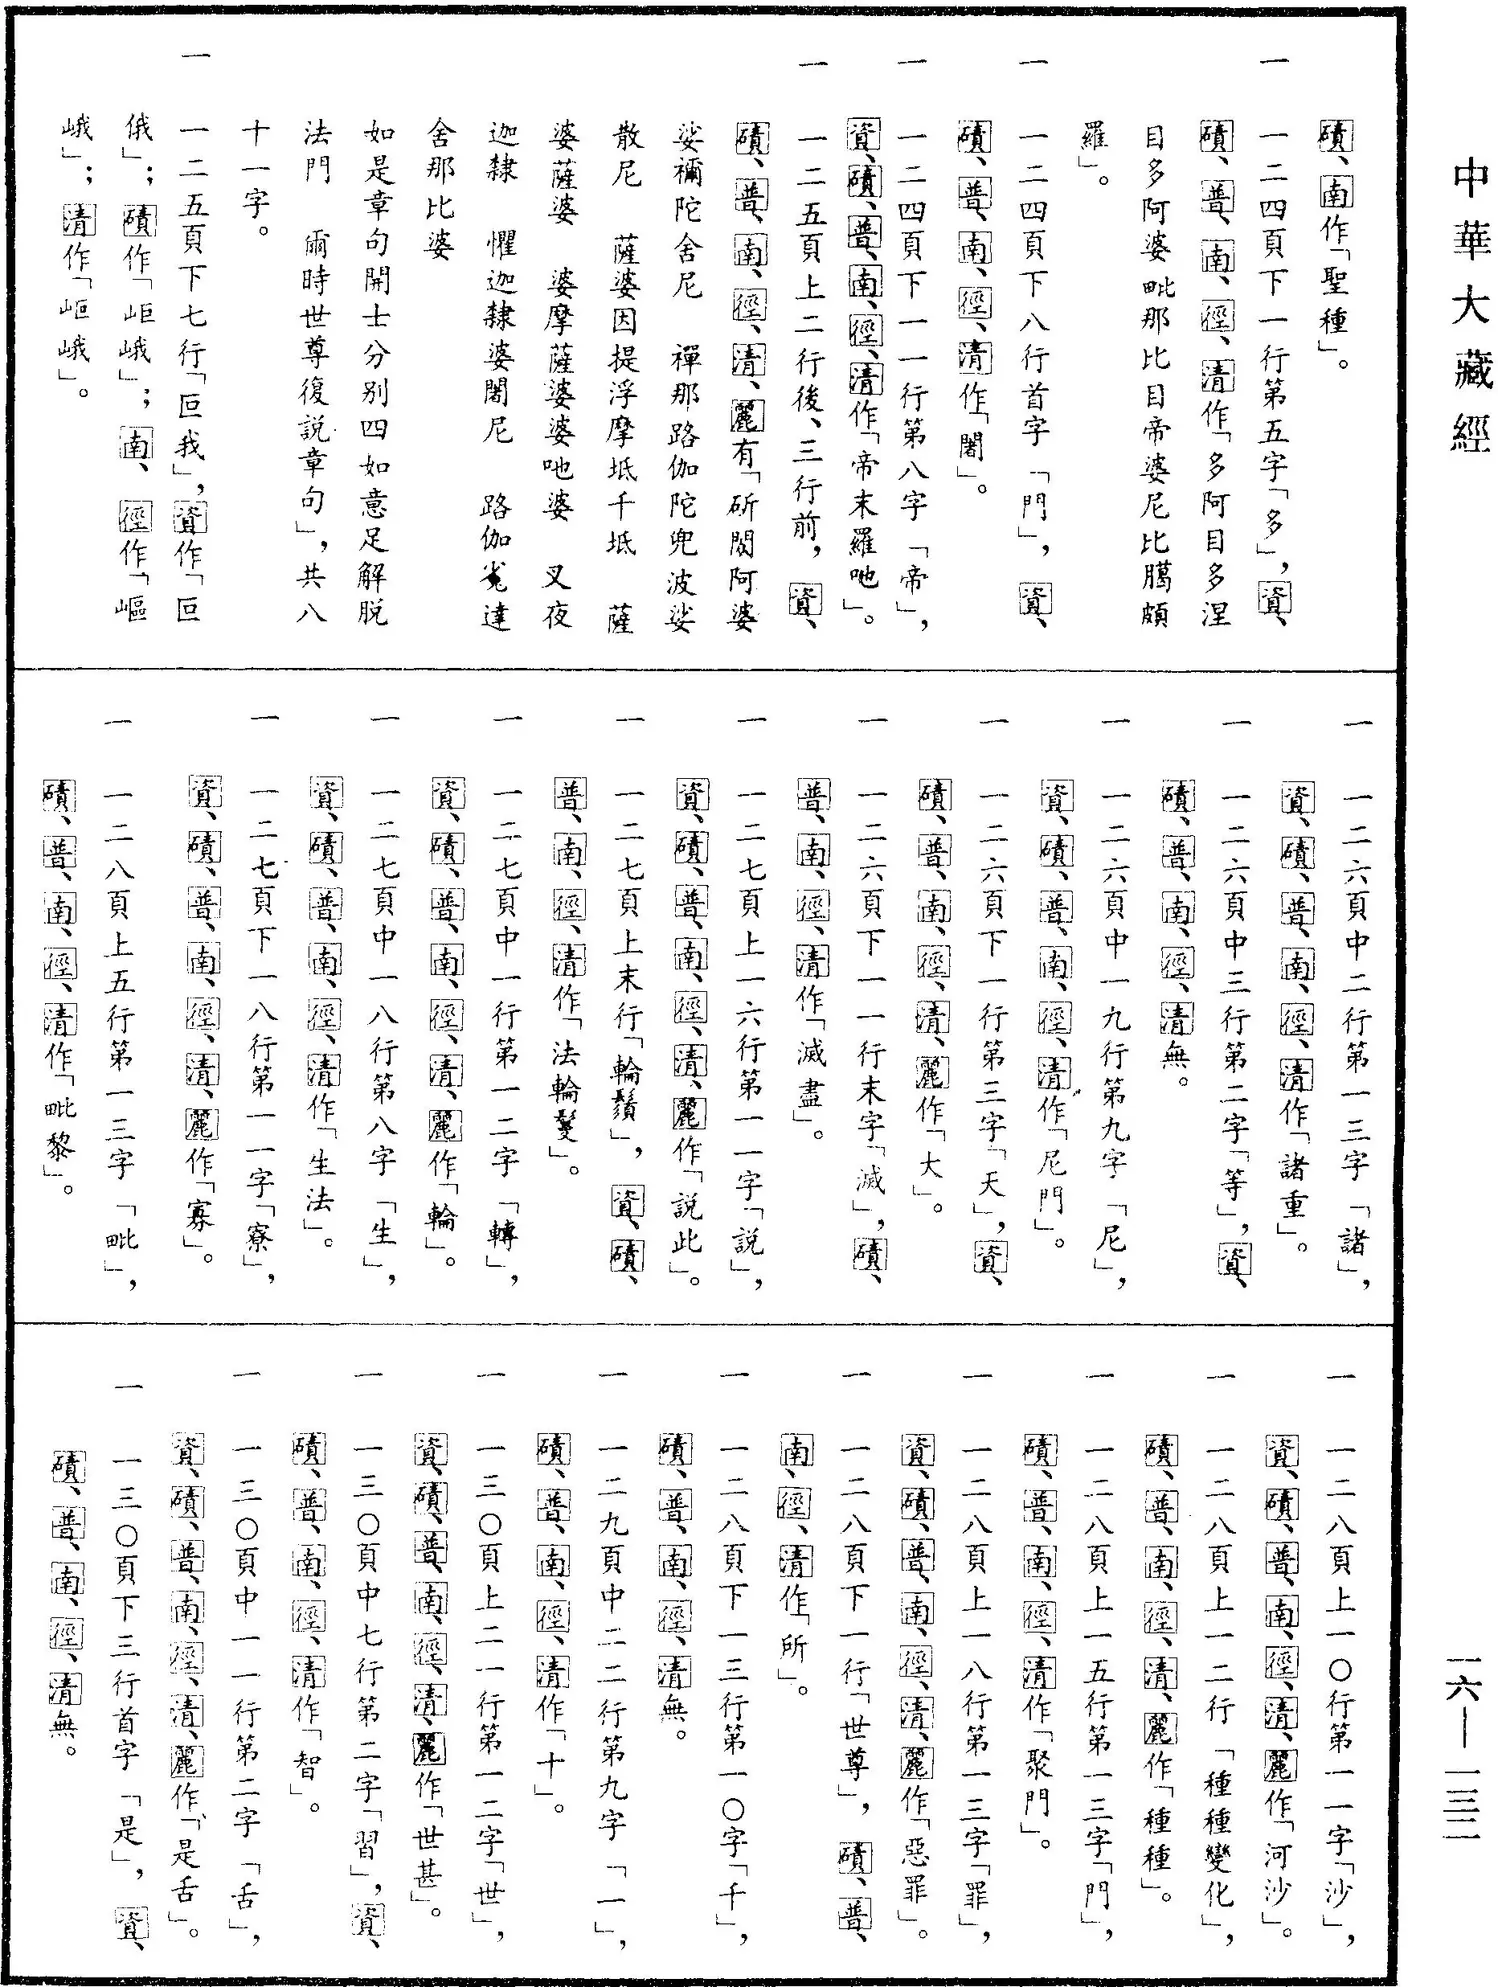 中華大藏經
磧、南作「聖種」。
一 一二四頁下一行第五字「多」，資、
磧、普、南、徑、清作「多阿目多涅
目多阿婆毗那比目帝婆尼比臈頗
羅」。
一 一二四頁下八行首字「門」，資、
磧、普、南、徑、清作「闍」。
一 一二四頁下一一行第八字「帝」，
資、磧、普、南、徑、清作「帝末羅吔」。
一 一二五頁上二行後、三行前，資、
磧、普、南、徑、清、麗有「斫閦阿婆
娑禰陀舍尼 禪那路伽陀兜波娑
散尼 薩婆因提浮摩坻千坻 薩
婆薩婆 婆摩薩婆婆吔婆 叉夜
迦隸 懼迦隸婆闍尼 路伽㝹達
舍那比婆
如是章句開士分别四如意足解脱
法門 爾時世尊復説章句」，共八
十一字。
一 一二五頁下七行「叵我」，資作「叵
俄」；磧作「岠峨」；南、徑作「嶇
峨」；清作「岖峨」。
一 一二六頁中二行第一三字「諸」，
資、磧、普、南、徑、清作「諸重」。
一 一二六頁中三行第二字「等」，資、
磧、普、南、徑、清無。
一 一二六頁中一九行第九字「尼」，
資、磧、普、南、徑、清作「尼門」。
一 一二六頁下一行第三字「天」，資、
磧、普、南、徑、清、麗作「大」。
一 一二六頁下一一行末字「滅」，磧、
普、南、徑、清作「滅盡」。
一 一二七頁上一六行第一一字「説」，
資、磧、普、南、徑、清、麗作「説此」。
一 一二七頁上末行「輪鬚」，資、磧、
普、南、徑、清作「法輪鬘」。
一 一二七頁中一行第一二字「轉」，
資、磧、普、南、徑、清、麗作「輪」。
一 一二七頁中一八行第八字「生」，
資、磧、普、南、徑、清作「生法」。
一 一二七頁下一八行第一一字「寮」，
資、磧、普、南、徑、清、麗作「寡」。
一 一二八頁上五行第一三字「毗」，
磧、普、南、徑、清作「毗黎」。
一 一二八頁上一〇行第一一字「沙」，
資、磧、普、南、徑、清、麗作「河沙」。
一 一二八頁上一二行「種種變化」，
磧、普、南、徑、清、麗作「種種」。
一 一二八頁上一五行第一三字「門」，
磧、普、南、徑、清作「聚門」。
一 一二八頁上一八行第一三字「罪」，
資、磧、普、南、徑、清、麗作「惡罪」。
一 一二八頁下一行「世尊」，磧、普、
南、徑、清作「所」。
一 一二八頁下一三行第一〇字「千」，
磧、普、南、徑、清無。
一 一二九頁中二二行第九字「一」，
磧、普、南、徑、清作「十」。
一 一三〇頁上二一行第一二字「世」，
資、磧、普、南、徑、清、麗作「世甚」。
一 一三〇頁中七行第二字「習」，資、
磧、普、南、徑、清作「智」。
一 一三〇頁中一一行第二字「舌」，
資、磧、普、南、徑、清、麗作「是舌」。
一 一三〇頁下三行首字「是」，資、
磧、普、南、徑、清無。
一六—一三二